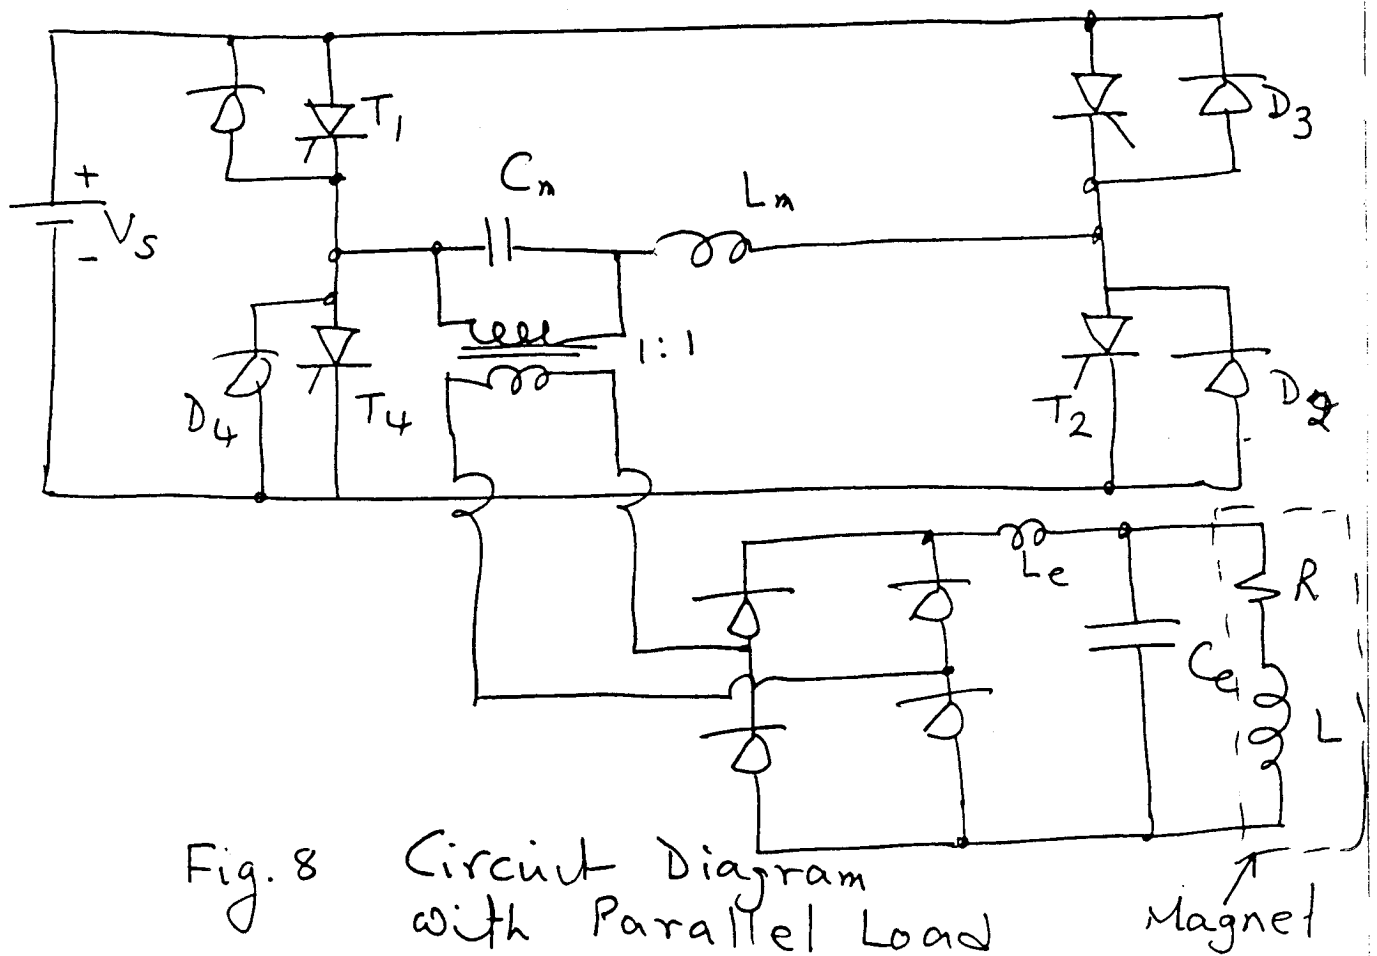 T1
D3
+
Cn
Lm
Vs
-
1:1
D4
T4
T2
D2
Le
R
Ce
L
Fig. 8 Circuit Diagram
with Parallel Load
Magnet